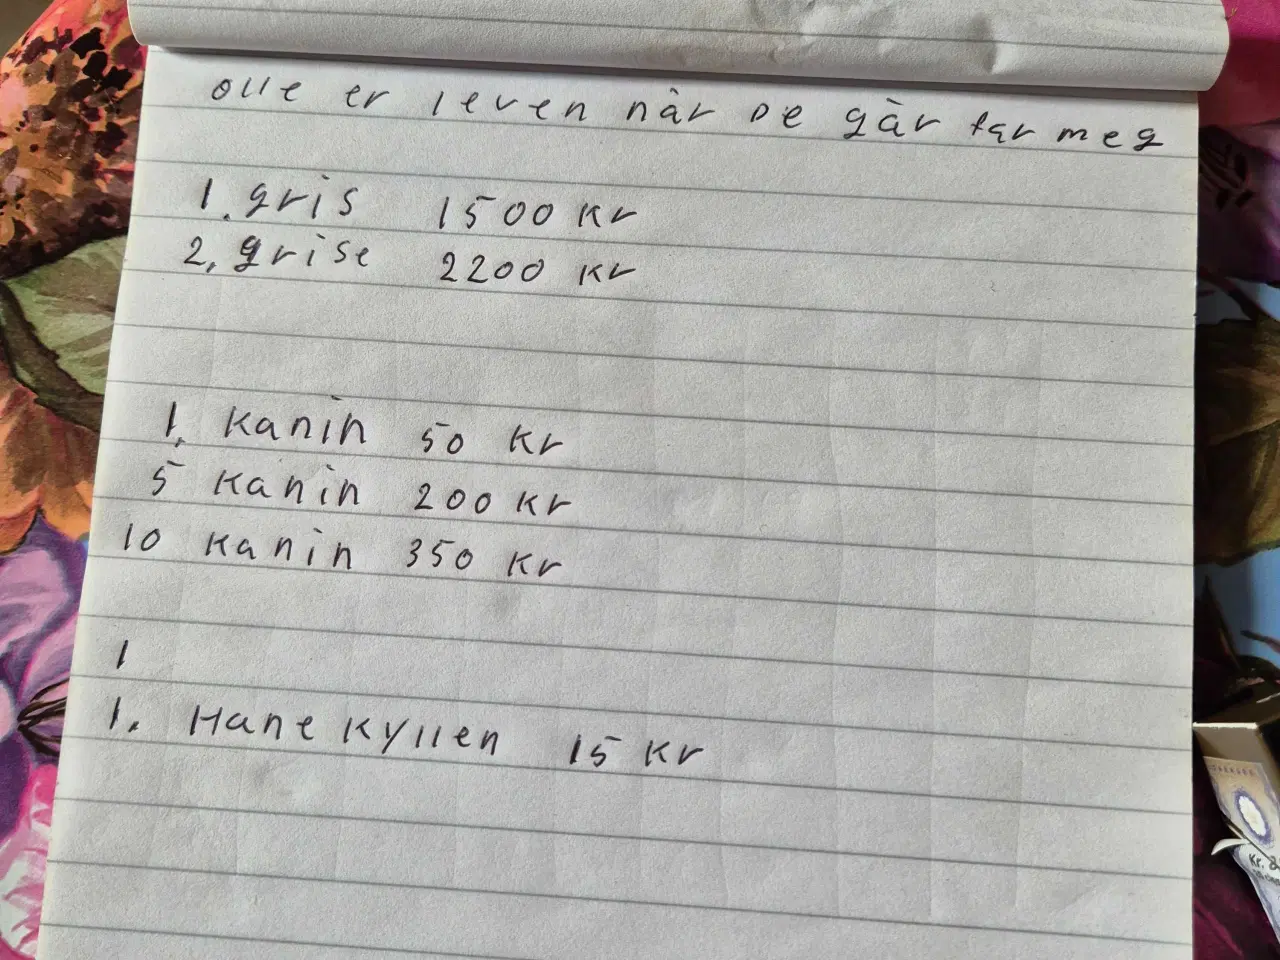 olle er leven når De går far meg
1. gris 1500 kr
2. grise 2200 kr
1. kanin 50 kr
5 kanin 200 kr
10 kanin 350 kr
1
1. Hane kyllen 15 kr
Kr.